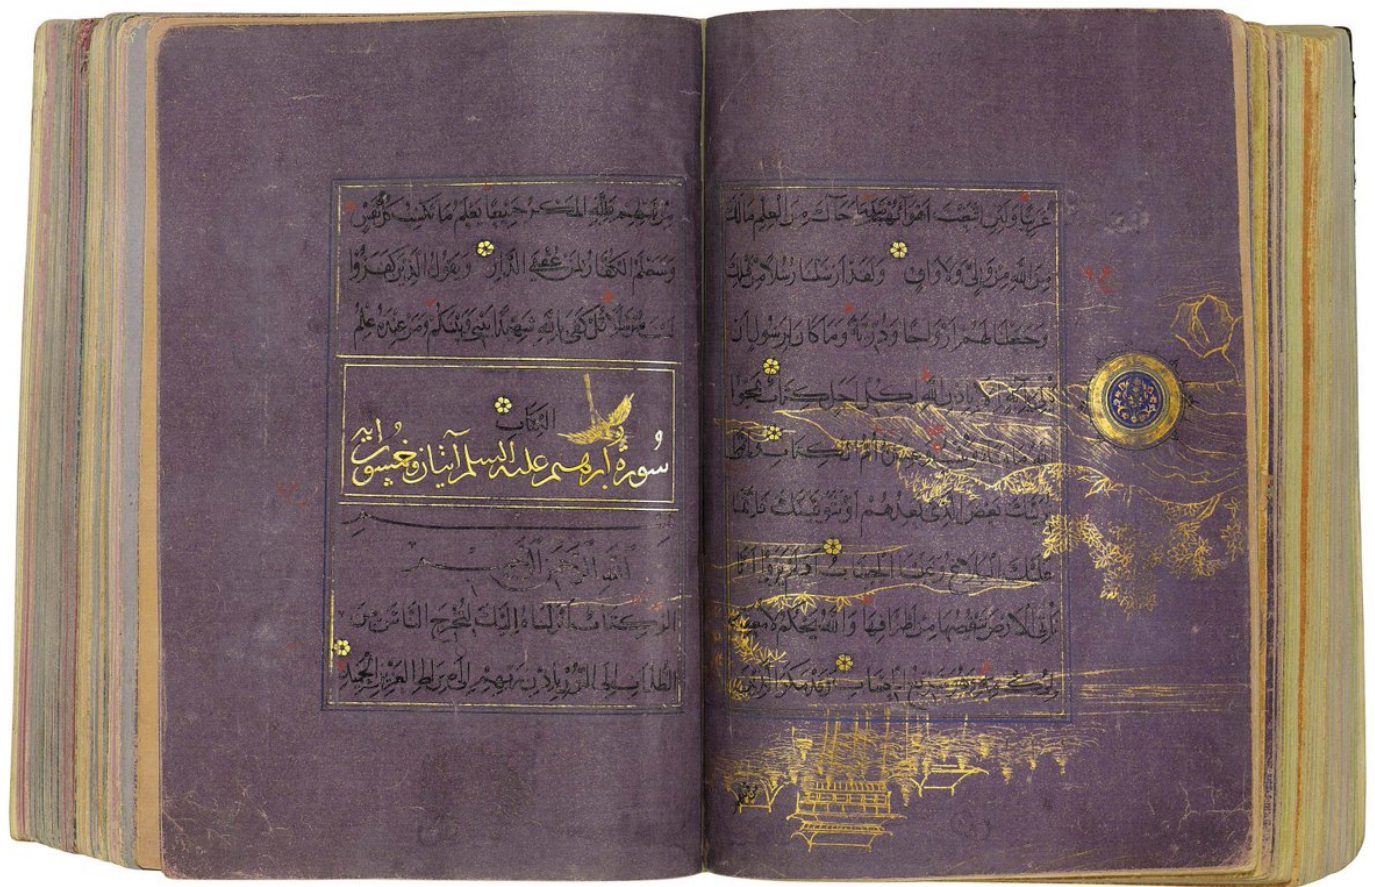 عربيا ولئن اتبعت اهوائهم بعد ما جاءك من العلم مالك
من الله من ولي ولا واق ولقد ارسلنا رسلا من قبلك
وجعلنا لهم ازواجا وذرية وما كان لرسول ان
يأتي بآية الا باذن الله لكل اجل كتاب يمحوا
الله ما يشاء ويثبت وعنده ام الكتاب وان ما
نرينك بعض الذي نعدهم او نتوفينك فانما
عليك البلاغ وعلينا الحساب اولم يروا انا
نأتي الارض ننقصها من اطرافها والله يحكم لا معقب
لحكمه وهو سريع الحساب وقد مكر الذين
من قبلهم فلله المكر جميعا يعلم ما تكسب كل نفس
وسيعلم الكفار لمن عقبى الدار ويقول الذين كفروا
لست مرسلا قل كفى بالله شهيدا بيني وبينكم ومن عنده علم
الكتاب
سورة ابرهيم عليه السلم اثنان وخمسون اية
بسم
الله الرحمن الرحيم
الر كتاب انزلناه اليك لتخرج الناس من
الظلمات الى النور باذن ربهم الى صراط العزيز الحميد